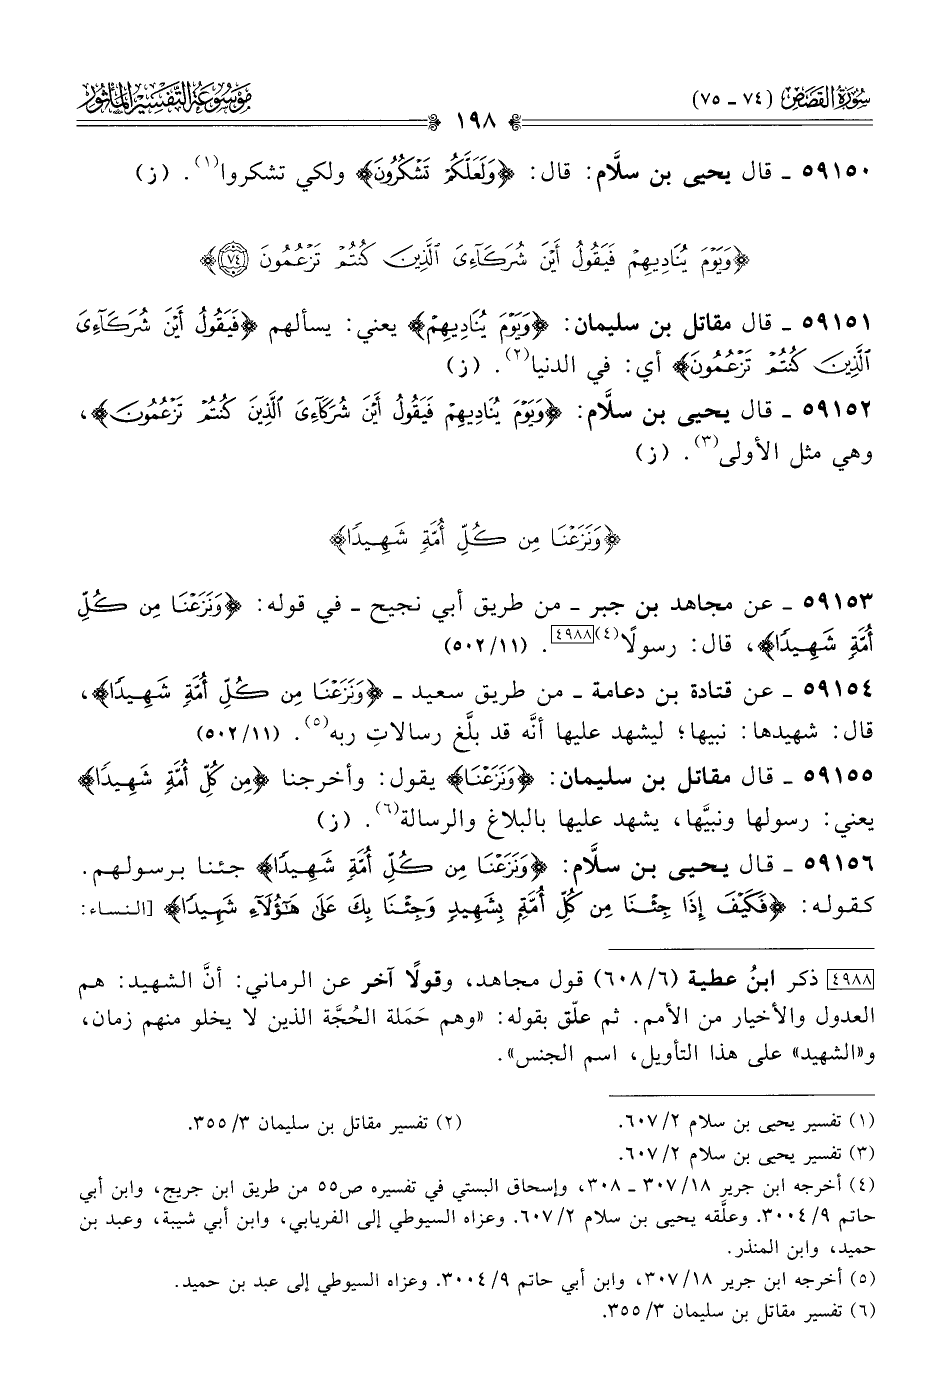 سُورَةُ القَصَصِ (٧٤ - ٧٥)
مَوْسُوعَة التَّفْسِيْر المَأْثُور
١٩٨
٥٩١٥٠ - قال يحيى بن سلَّام: قال: ﴿وَلَعَلَّكُمْ تَشْكُرُونَ﴾ ولكي تشكروا(١). (ز)
﴿وَيَوْمَ يُنَادِيهِمْ فَيَقُولُ أَيْنَ شُرَكَآءِىَ ٱلَّذِينَ كُنتُمْ تَزْعُمُونَ ٧٤﴾
٥٩١٥١ - قال مقاتل بن سليمان: ﴿وَيَوْمَ يُنَادِيهِمْ﴾ يعني: يسألهم ﴿فَيَقُولُ أَيْنَ شُرَكَآءِىَ
ٱلَّذِينَ كُنتُمْ تَزْعُمُونَ﴾ أي: في الدنيا(٢). (ز)
٥٩١٥٢ - قال يحيى بن سلَّام: ﴿وَيَوْمَ يُنَادِيهِمْ فَيَقُولُ أَيْنَ شُرَكَآءِىَ ٱلَّذِينَ كُنتُمْ تَزْعُمُونَ﴾،
وهي مثل الأولى(٣). (ز)
﴿وَنَزَعْنَا مِن كُلِّ أُمَّةٍ شَهِيدًا﴾
٥٩١٥٣ - عن مجاهد بن جبر - من طريق أبي نجيح - في قوله: ﴿وَنَزَعْنَا مِن كُلِّ
أُمَّةٍ شَهِيدًا﴾، قال: رسولًا(٤)[٤٩٨٨]. (٥٠٢/١١)
٥٩١٥٤ - عن قتادة بن دعامة - من طريق سعيد - ﴿وَنَزَعْنَا مِن كُلِّ أُمَّةٍ شَهِيدًا﴾،
قال: شهيدها: نبيها؛ ليشهد عليها أنَّه قد بلَّغ رسالاتِ ربه(٥). (٥٠٢/١١)
٥٩١٥٥ - قال مقاتل بن سليمان: ﴿وَنَزَعْنَا﴾ يقول: وأخرجنا ﴿مِن كُلِّ أُمَّةٍ شَهِيدًا﴾
يعني: رسولها ونبيَّها، يشهد عليها بالبلاغ والرسالة(٦). (ز)
٥٩١٥٦ - قال يحيى بن سلَّام: ﴿وَنَزَعْنَا مِن كُلِّ أُمَّةٍ شَهِيدًا﴾ جئنا برسولهم.
كقوله: ﴿فَكَيْفَ إِذَا جِئْنَا مِن كُلِّ أُمَّةٍ بِشَهِيدٍ وَجِئْنَا بِكَ عَلَىٰ هَٰٓؤُلَآءِ شَهِيدًا﴾ [النساء:
[٤٩٨٨] ذكر ابنُ عطية (٦٠٨/٦) قول مجاهد، وقولًا آخر عن الرماني: أنَّ الشهيد: هم
العدول والأخيار من الأمم. ثم علّق بقوله: «وهم حَمَلة الحُجَّة الذين لا يخلو منهم زمان،
و«الشهيد» على هذا التأويل، اسم الجنس».
(١) تفسير يحيى بن سلام ٦٠٧/٢.
(٢) تفسير مقاتل بن سليمان ٣٥٥/٣.
(٣) تفسير يحيى بن سلام ٦٠٧/٢.
(٤) أخرجه ابن جرير ٣٠٧/١٨ - ٣٠٨، وإسحاق البستي في تفسيره ص٥٥ من طريق ابن جريج، وابن أبي
حاتم ٣٠٠٤/٩. وعلَّقه يحيى بن سلام ٦٠٧/٢. وعزاه السيوطي إلى الفريابي، وابن أبي شيبة، وعبد بن
حميد، وابن المنذر.
(٥) أخرجه ابن جرير ٣٠٧/١٨، وابن أبي حاتم ٣٠٠٤/٩. وعزاه السيوطي إلى عبد بن حميد.
(٦) تفسير مقاتل بن سليمان ٣٥٥/٣.